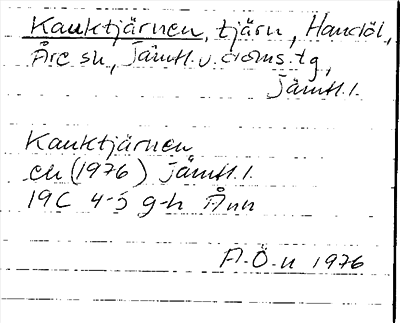 Kauktjärnen, tjärn, Handöl,
Åre sn, Jämtl. v. doms. tg,
Jämtl. l.
Kauktjärnen
ek (1976) Jämtl. l.
19C 4-5 g-h Ånn
A.Ö-n 1976